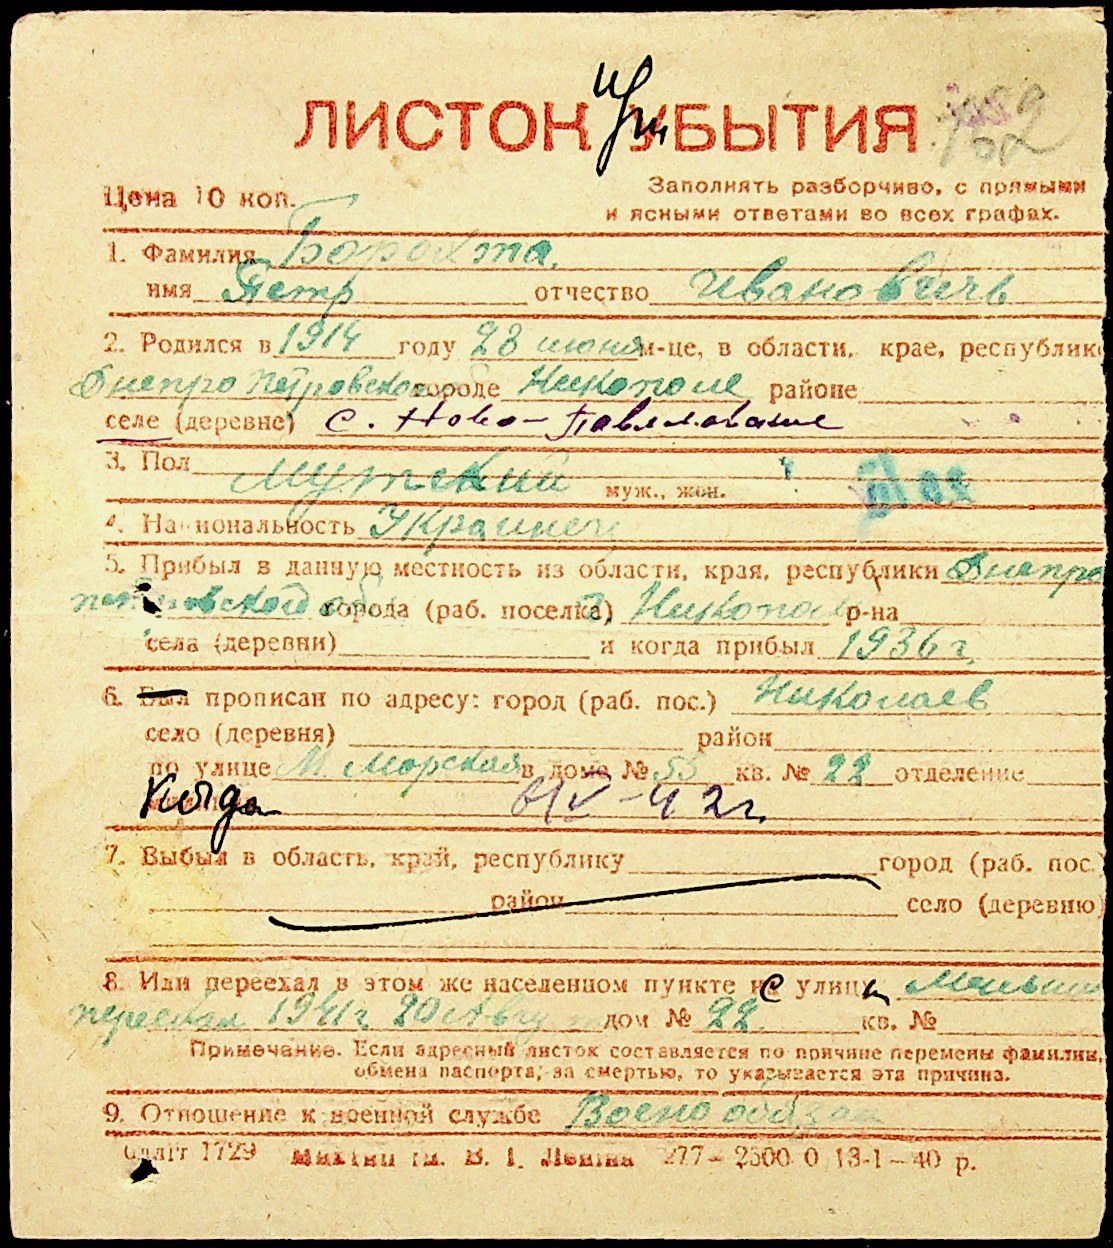 ЛИСТОК УБЫТИЯ
при
Цена 10 коп.
Заполнять разборчиво, с прямыми
и ясными ответами во всех графах.
1. Фамилия Борохта
имя Петр отчество Ивановичь
2. Родился в 1914 году 28 июня м-це, в области, крае, республике
Днепропетровской городе Никополе районе
селе (деревне) с. Ново-Павлование
3. Пол мужский муж., жен.
4. Национальность Украинец
5. Прибыл в данную местность из области, края, республики Днепро
петровского города (раб. поселка) Никополь р-на
села (деревни) и когда прибыл 1936 г.
6. Был прописан по адресу: город (раб. пос.) Николаев
село (деревня) район
по улице М. Морская в доме № 55 кв. № 22 отделение
Когда IV-42г.
7. Выбыл в область, край, республику город (раб. пос.)
район село (деревню)
8. Или переехал в этом же населенном пункте с улицы
переехал 1941 г 20 Авгу дом № 22 кв. №
Примечание. Если адресный листок составляется по причине перемены фамилии,
обмена паспорта, за смертью, то указывается эта причина.
9. Отношение к военной службе Военообяз
1729 ім. В. І. Леніна 277–2500 0 13-1–40 р.